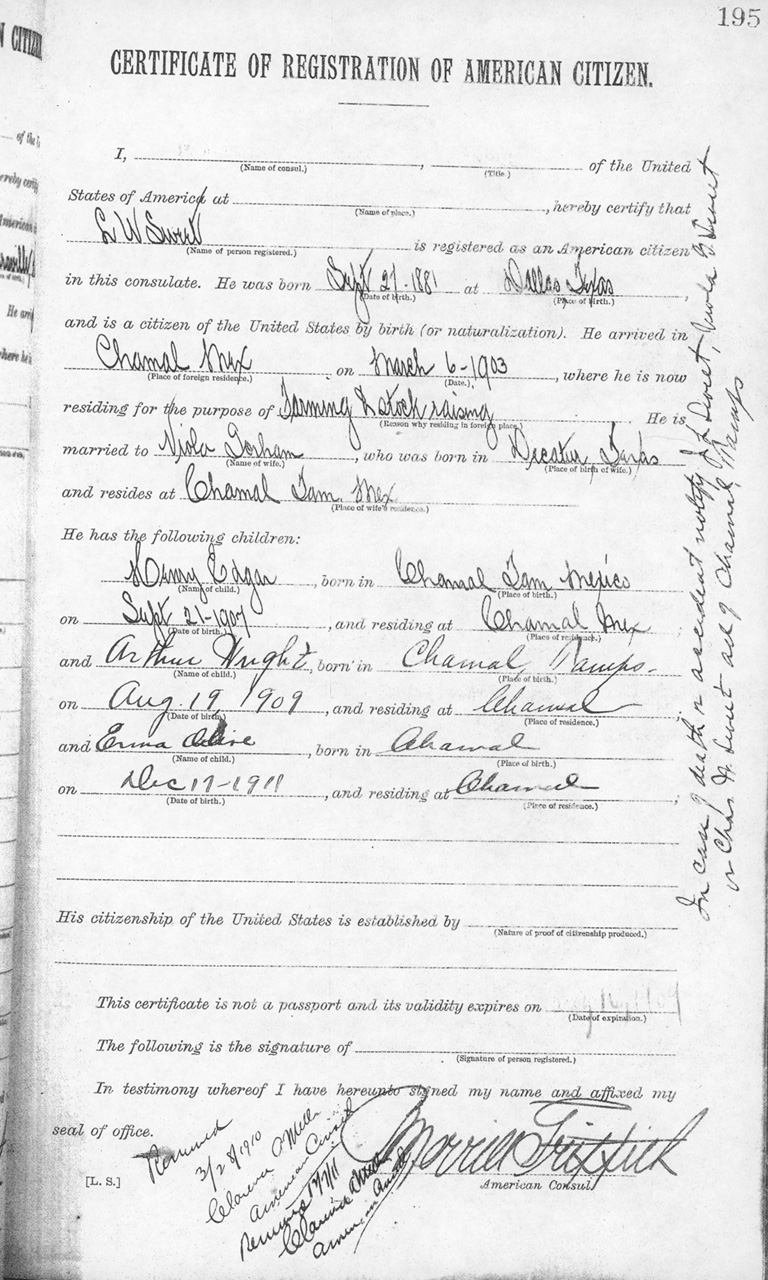 195
CERTIFICATE OF REGISTRATION OF AMERICAN CITIZEN.
I, , of the United
(Name of consul.) (Title.)
States of America at , hereby certify that
(Name of place.)
L W Sweet is registered as an American citizen
(Name of person registered.)
in this consulate. He was born Sept 21-1881 at Dallas Texas,
(Date of birth.) (Place of birth.)
and is a citizen of the United States by birth (or naturalization). He arrived in
Chamal Mex on March 6-1903, where he is now
(Place of foreign residence.) (Date.)
residing for the purpose of Farming & stock raising. He is
(Reason why residing in foreign place.)
married to Viola Gorham, who was born in Decatur Texas
(Name of wife.) (Place of birth of wife.)
and resides at Chamal Tam. Mex
(Place of wife's residence.)
He has the following children:
Henry Edgar, born in Chamal Tam Mexico
(Name of child.) (Place of birth.)
on Sept 21-1907, and residing at Chamal Mex
(Date of birth.) (Place of residence.)
and Arthur Wright, born in Chamal Tamps.
(Name of child.) (Place of birth.)
on Aug. 19, 1909, and residing at Chamal
(Date of birth.) (Place of residence.)
and Erma Olive, born in Chamal
(Name of child.) (Place of birth.)
on Dec 17-1911, and residing at Chamal,
(Date of birth.) (Place of residence.)
His citizenship of the United States is established by
(Nature of proof of citizenship produced.)
This certificate is not a passport and its validity expires on
(Date of expiration.)
The following is the signature of
(Signature of person registered.)
In testimony whereof I have hereunto signed my name and affixed my
seal of office.
[L. S.]
American Consul.
Renewed
3/28/1910
Clarence A Miller
American Consul
Renewed 1/7/11
Clarence A Miller
American Consul
In case of death or accident notify J L Sweet, Viola G. Sweet
or Chas H. Sweet all of Chamal Tamps